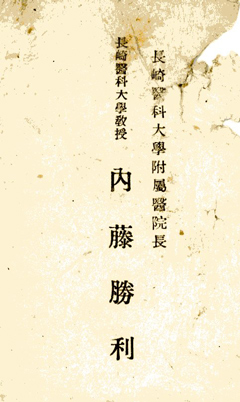 長崎醫科大學附屬醫院長
長崎醫科大學教授
內藤勝利